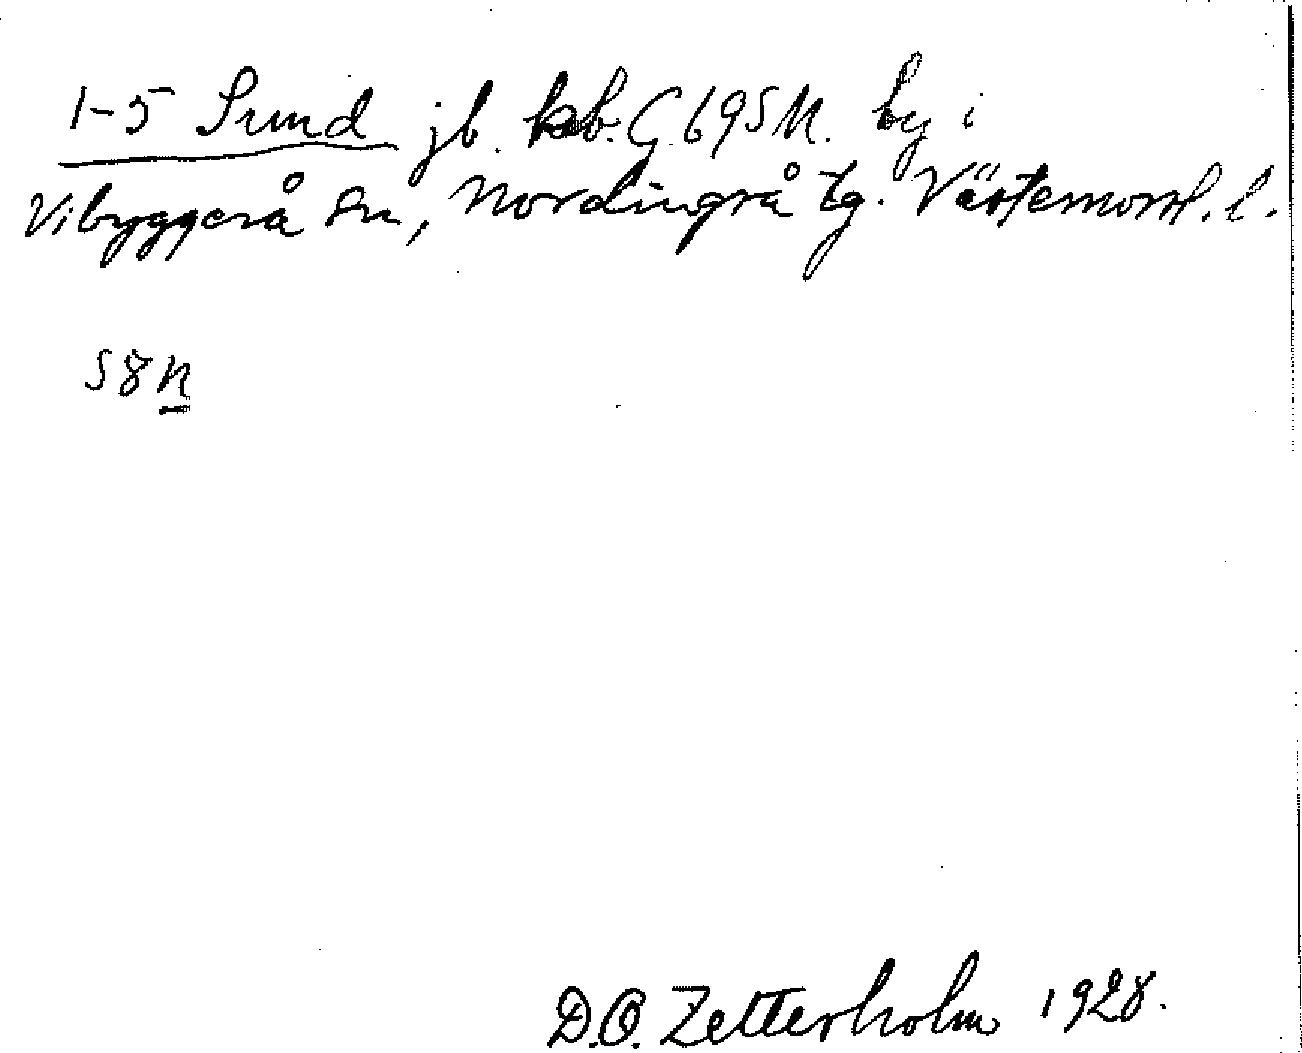 1-5 Sund jb. kb. G. 695 M. by i
Vibyggerå sn, Nordingrå tg. Västernorrl. l.
S8n
D.O. Zetterholm 1928.